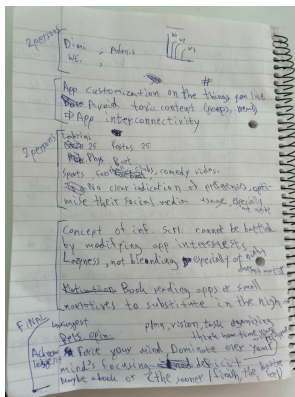 2 persons
Dimi , Adonis
WE.
#
App customization on the things you like
Avoid toxic content (people, news)
App interconnectivity
2 persons
Katerini
25 Kostas 25
Phys Bart
Sports, comedy videos.
No clear indication of preferences, opti-
mise their social media usage, especially
at night
Concept of inf. scrl. cannot be battled
by modifying app interests.
Laziness, not blending especially at night
Book reading apps or small
narratives to substitute in the night
FINAL suggest plan, vision, task organizing
think long time
Force your mind, Dominate over your
mind's focusing deficit
Maybe a book or (the sooner I finish, the better